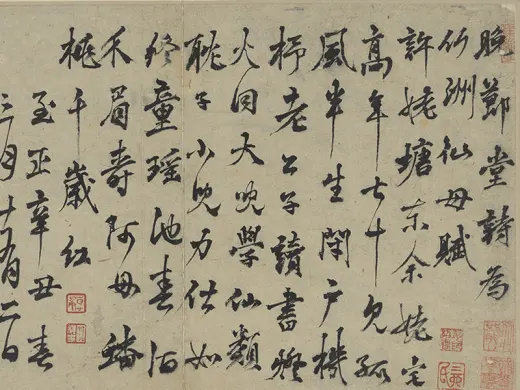 晚節堂詩為
竹洲仙母賦
許姥塘東余姥宅
高年七十見孤
風半生閉戶機
杼老公子讀書燈
火同大兒學仙類
耼子小兒力仕如
終童瑤池春酒
介眉壽阿母蟠
桃千歲紅
至正辛丑春
三月十有二日